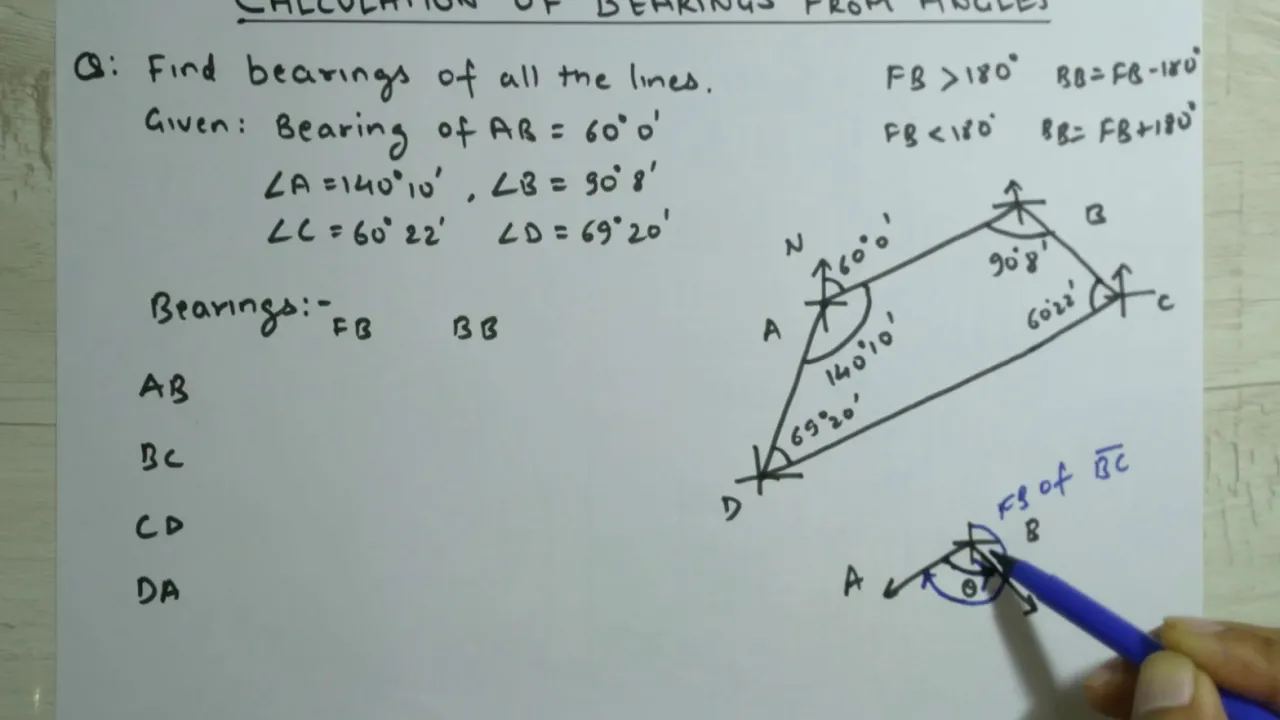 CALCULATION OF BEARINGS FROM ANGLES
Q: Find bearings of all the lines.
FB > 180° BB = FB - 180°
Given: Bearing of AB = 60° 0'
FB < 180° BB = FB + 180°
∠A = 140° 10' , ∠B = 90° 8'
∠C = 60° 22' ∠D = 69° 20'
Bearings:-
FB BB
AB
BC
CD
DA
N
60° 0'
B
90° 8'
A
140° 10'
60° 22'
C
69° 20'
D
FB of BC
B
A
θ